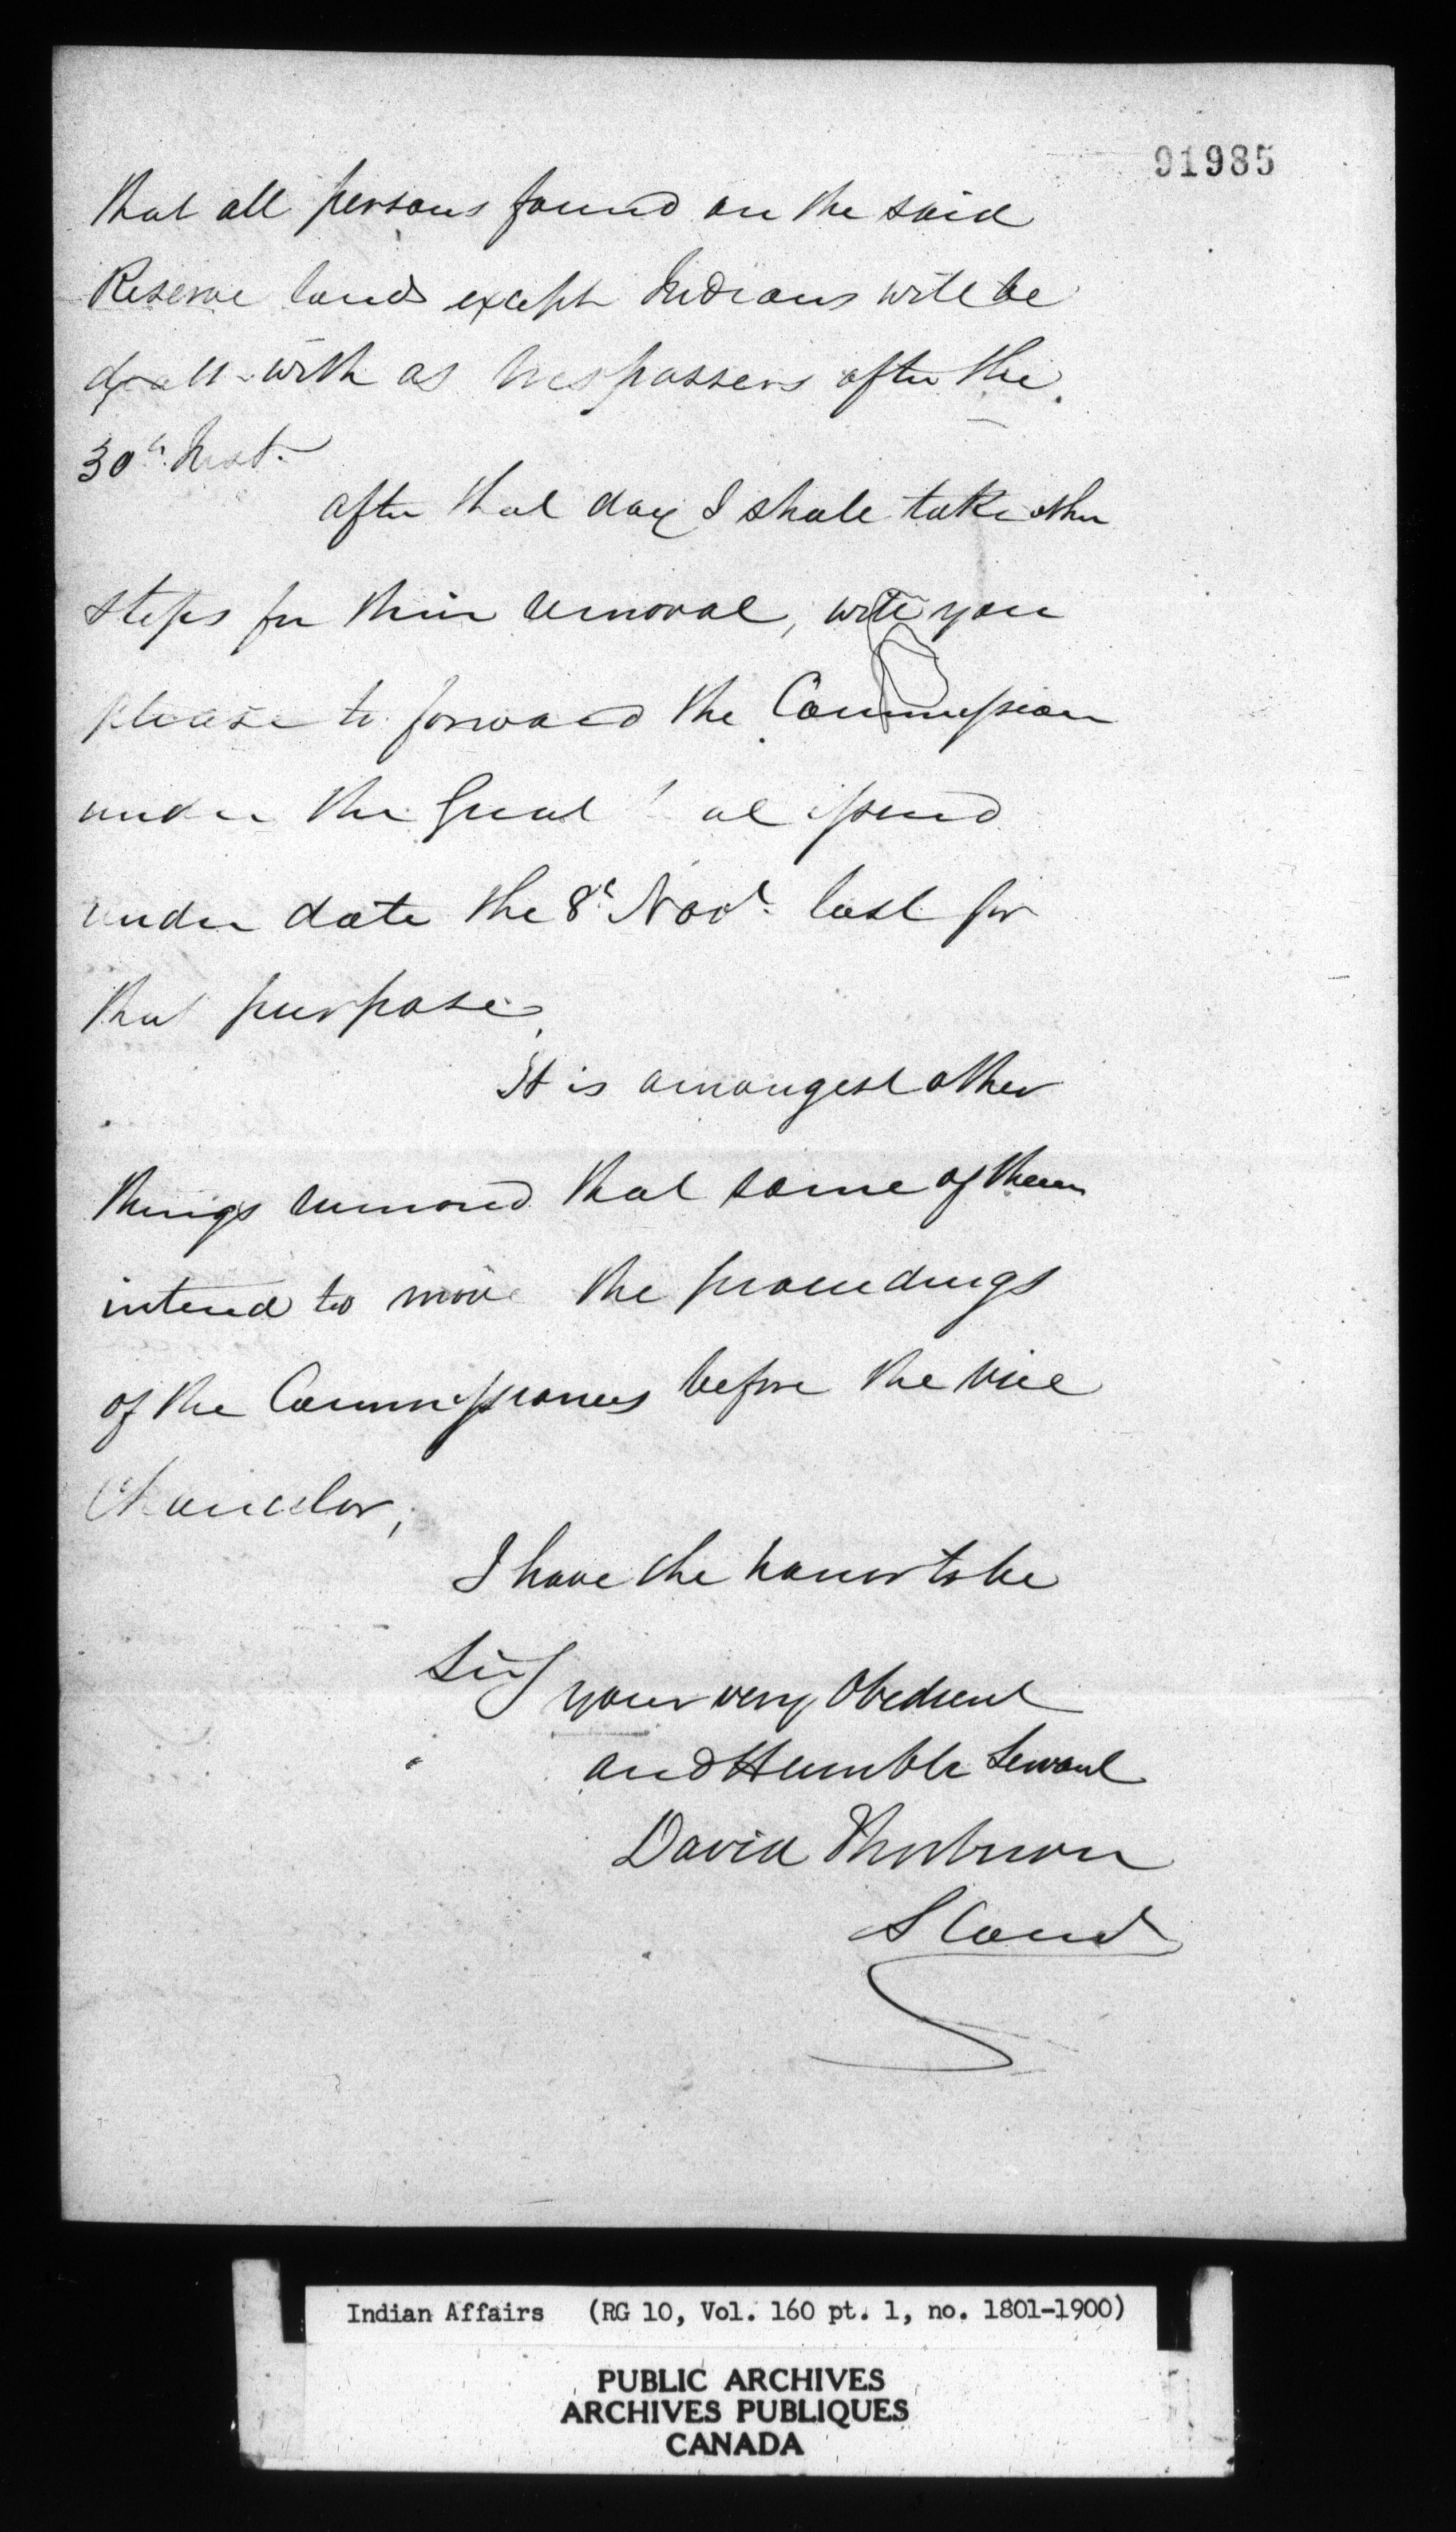 91985
that all persons found on the said
Reserve lands except Indians will be
dealt with as trespassers after the
30th Inst.
after that day I shall take other
steps for their removal, will you
please to forward the Commission
under the Great Seal issued
under date the 8th Novr. last for
that purpose,
It is amongest other
things rumored that some of them
intend to move the proceedings
of the Commissioners before the Vice
Chancelor,
I have the honor to be
Sir
your very Obedient
and Humble Servant
David Thorburn
Indian Affairs (RG 10, Vol. 160 pt. 1, no. 1801-1900)
PUBLIC ARCHIVES
ARCHIVES PUBLIQUES
CANADA